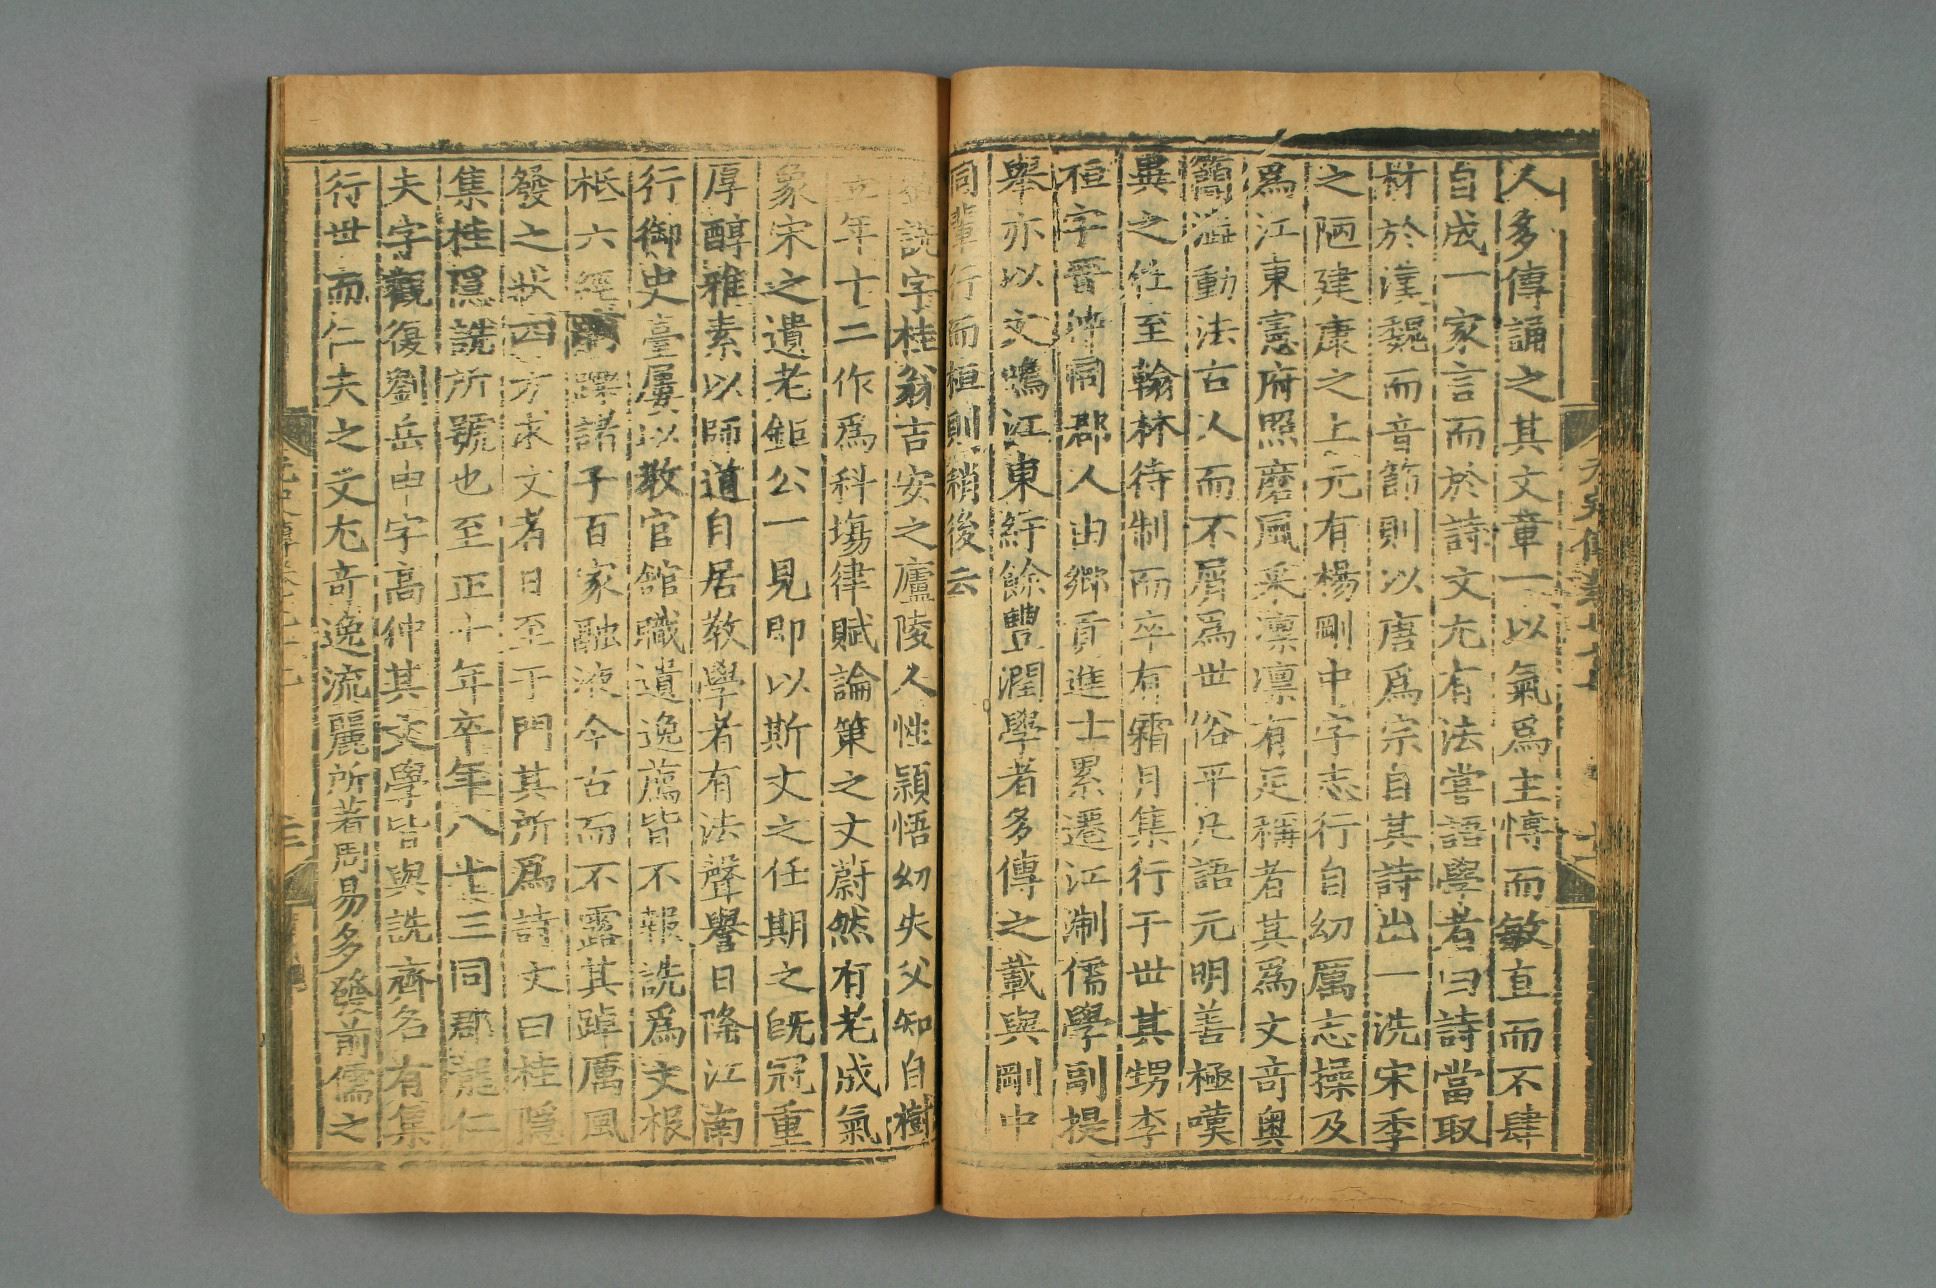 人多傳誦之其文章一以氣爲主惇而敏直而不肆
自成一家言而於詩文尤有法嘗語學者曰詩當取
材於漢魏而音節則以唐爲宗自其詩出一洗宋季
之陋建康之上元有楊剛中字志行自幼厲志操及
爲江東憲府照磨風采凛凛有足稱者其爲文竒奥
簡澁動法古人而不屑爲世俗平凡語元明善極嘆
異之仕至翰林待制而卒有霜月集行于世其甥李
桓字晋仲同郡人由鄉貢進士累遷江淛儒學副提
舉亦以文鳴江東紆餘豐潤學者多傳之載與剛中
同輩行而桓則稍後云
詵字桂翁吉安之廬陵人性頴悟幼失父知自樹
立年十二作爲科塲律賦論策之文蔚然有老成氣
象宋之遺老鉅公一見即以斯文之任期之旣冠重
厚醇雅素以師道自居敎學者有法聲譽日隆江南
行御史臺屢以敎官館職遺逸薦皆不報詵爲文根
柢六經躪躒諸子百家融液今古而不露其踔厲風
發之狀四方求文者日至于門其所爲詩文曰桂隠
集桂隠詵所號也至正十年卒年八十三同郡龍仁
夫字觀復劉岳申字高仲其文學皆與詵齊名有集
行世而仁夫之文尤竒逸流麗所著周易多發前儒之